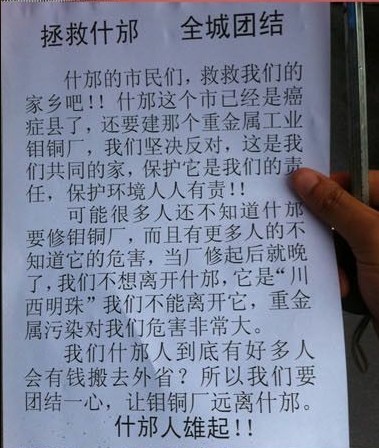 拯救什邡 全城团结
什邡的市民们，救救我们的
家乡吧!! 什邡这个市已经是癌
症县了，还要建那个重金属工业
钼铜厂，我们坚决反对，这是我
们共同的家，保护它是我们的责
任，保护环境人人有责!!
可能很多人还不知道什邡
要修钼铜厂，而且有更多人的不
知道它的危害，当厂修起后就晚
了，我们不想离开什邡，它是“川
西明珠”我们不能离开它，重金
属污染对我们危害非常大。
我们什邡人到底有好多人
会有钱搬去外省？所以我们要
团结一心，让钼铜厂远离什邡。
什邡人雄起!!